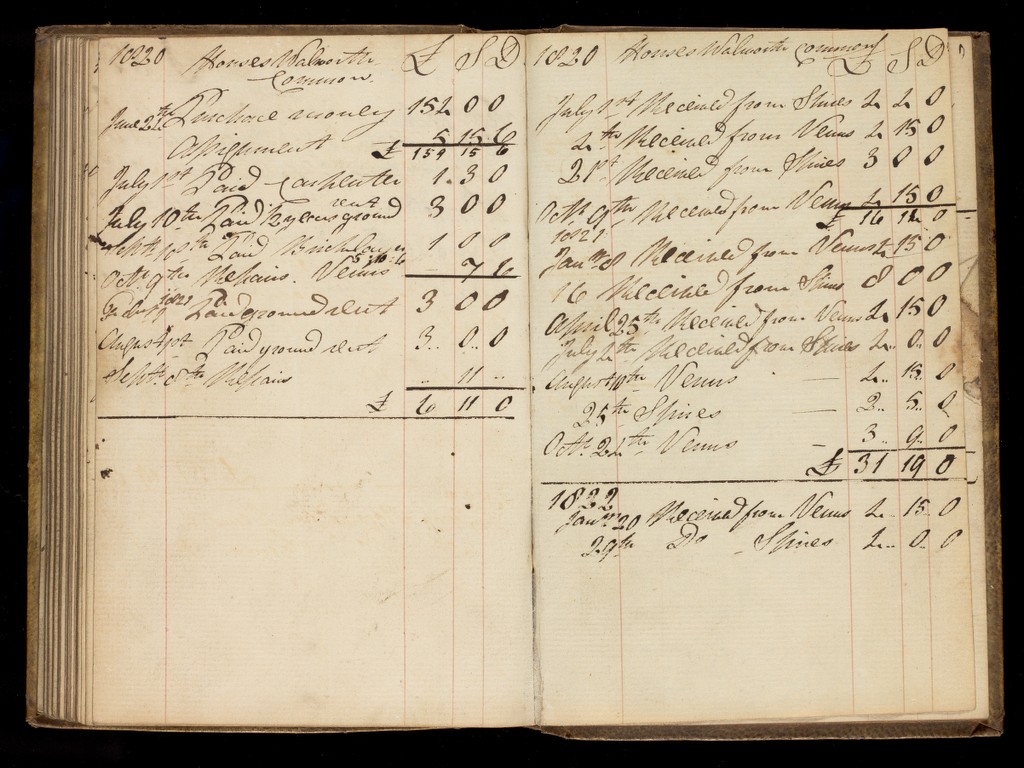 1820 Houses Walworth £ S D
Common
June 24th Purchace money 152 0 0
Assignment 5 15 6
£ 15 6
July 1st Paid Carpenter 1 3 0
rent
July 10th Paid ground 3 0 0
Septr 10th Paid Bricklayer 1 0 0
5 10 6
Octr 9th Repairs Venus 7 6
Paid ground rent 3 0 0
August 1st Paid ground rent 3 .. 0 .. 0
Septr 8th Repairs .. 11 ..
£ 6 11 0
1820 Houses Walworth Common
£ S D
July 1st Received from Spires 2 2 0
Received from Venus 2 15 0
21st Received from Spires 3 0 0
Octr 9th Received from Venus 2 15 0
£ 16 12 0
1821
Jany 8 Received from Venus 2 15 0
16 Received from Spires 8 0 0
April 25th Received from Venus 2 15 0
July Received from Spires 2 .. 0 .. 0
August 10th Venus — 2 .. 15 .. 0
25th Spires — 2 .. 5 .. 0
Octr 24th Venus — 3 .. 9 .. 0
£ 31 19 0
1822
Jany 20 Received from Venus 2 .. 15 .. 0
29th Do - Spires 2 .. 0 .. 0